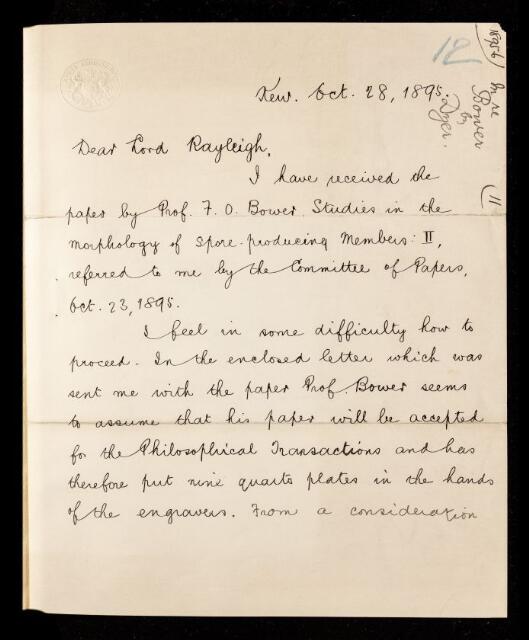 12
1895-6
In re
Bower
by
Dyer.
11
Kew. Oct. 28, 1895.
Dear Lord Rayleigh,
I have received the
paper by Prof. F. O. Bower Studies in the
morphology of spore-producing Members: II,
referred to me by the Committee of Papers,
Oct. 23, 1895.
I feel in some difficulty how to
proceed. In the enclosed letter which was
sent me with the paper Prof. Bower seems
to assume that his paper will be accepted
for the Philosophical Transactions and has
therefore put nine quarto plates in the hands
of the engravers. From a consideration